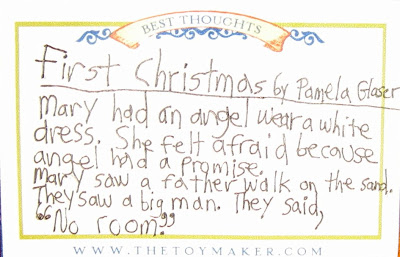 BEST THOUGHTS
First Christmas by Pamela Glaser
Mary had an angel wear a white
dress. She felt afraid because
angel had a promise.
Mary saw a father walk on the sand.
They saw a big man. They said,
"No room."
WWW.THETOYMAKER.COM